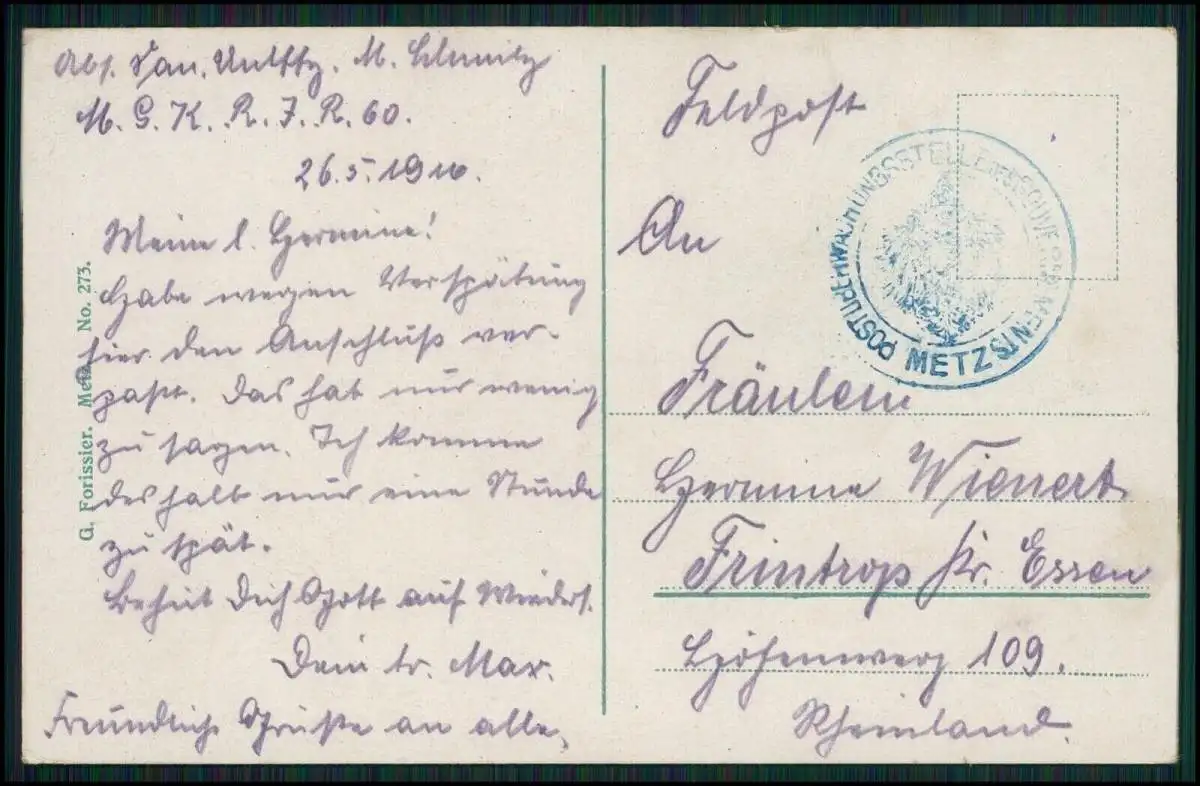 Abs. San. Untffz. M. Schmitz
M. G. K. R. I. R. 60.
26.5.1916.
Meine l. Hermine!
Habe wegen Verspätung
hier den Anschluß ver-
paßt. Das hat nur wenig
zu sagen. Ich komme
deshalb nur eine Stunde
zu spät.
Behüt Dich Gott auf Wieders.
Dein tr. Max.
Freundliche Grüße an alle.
G. Forissier. Metz No. 273.
Feldpost
An
Fräulein
Hermine Wienert
Frintrop Kr. Essen
Höhenweg 109.
Rheinland.
POSTÜBERWACHUNGSSTELLE
METZ